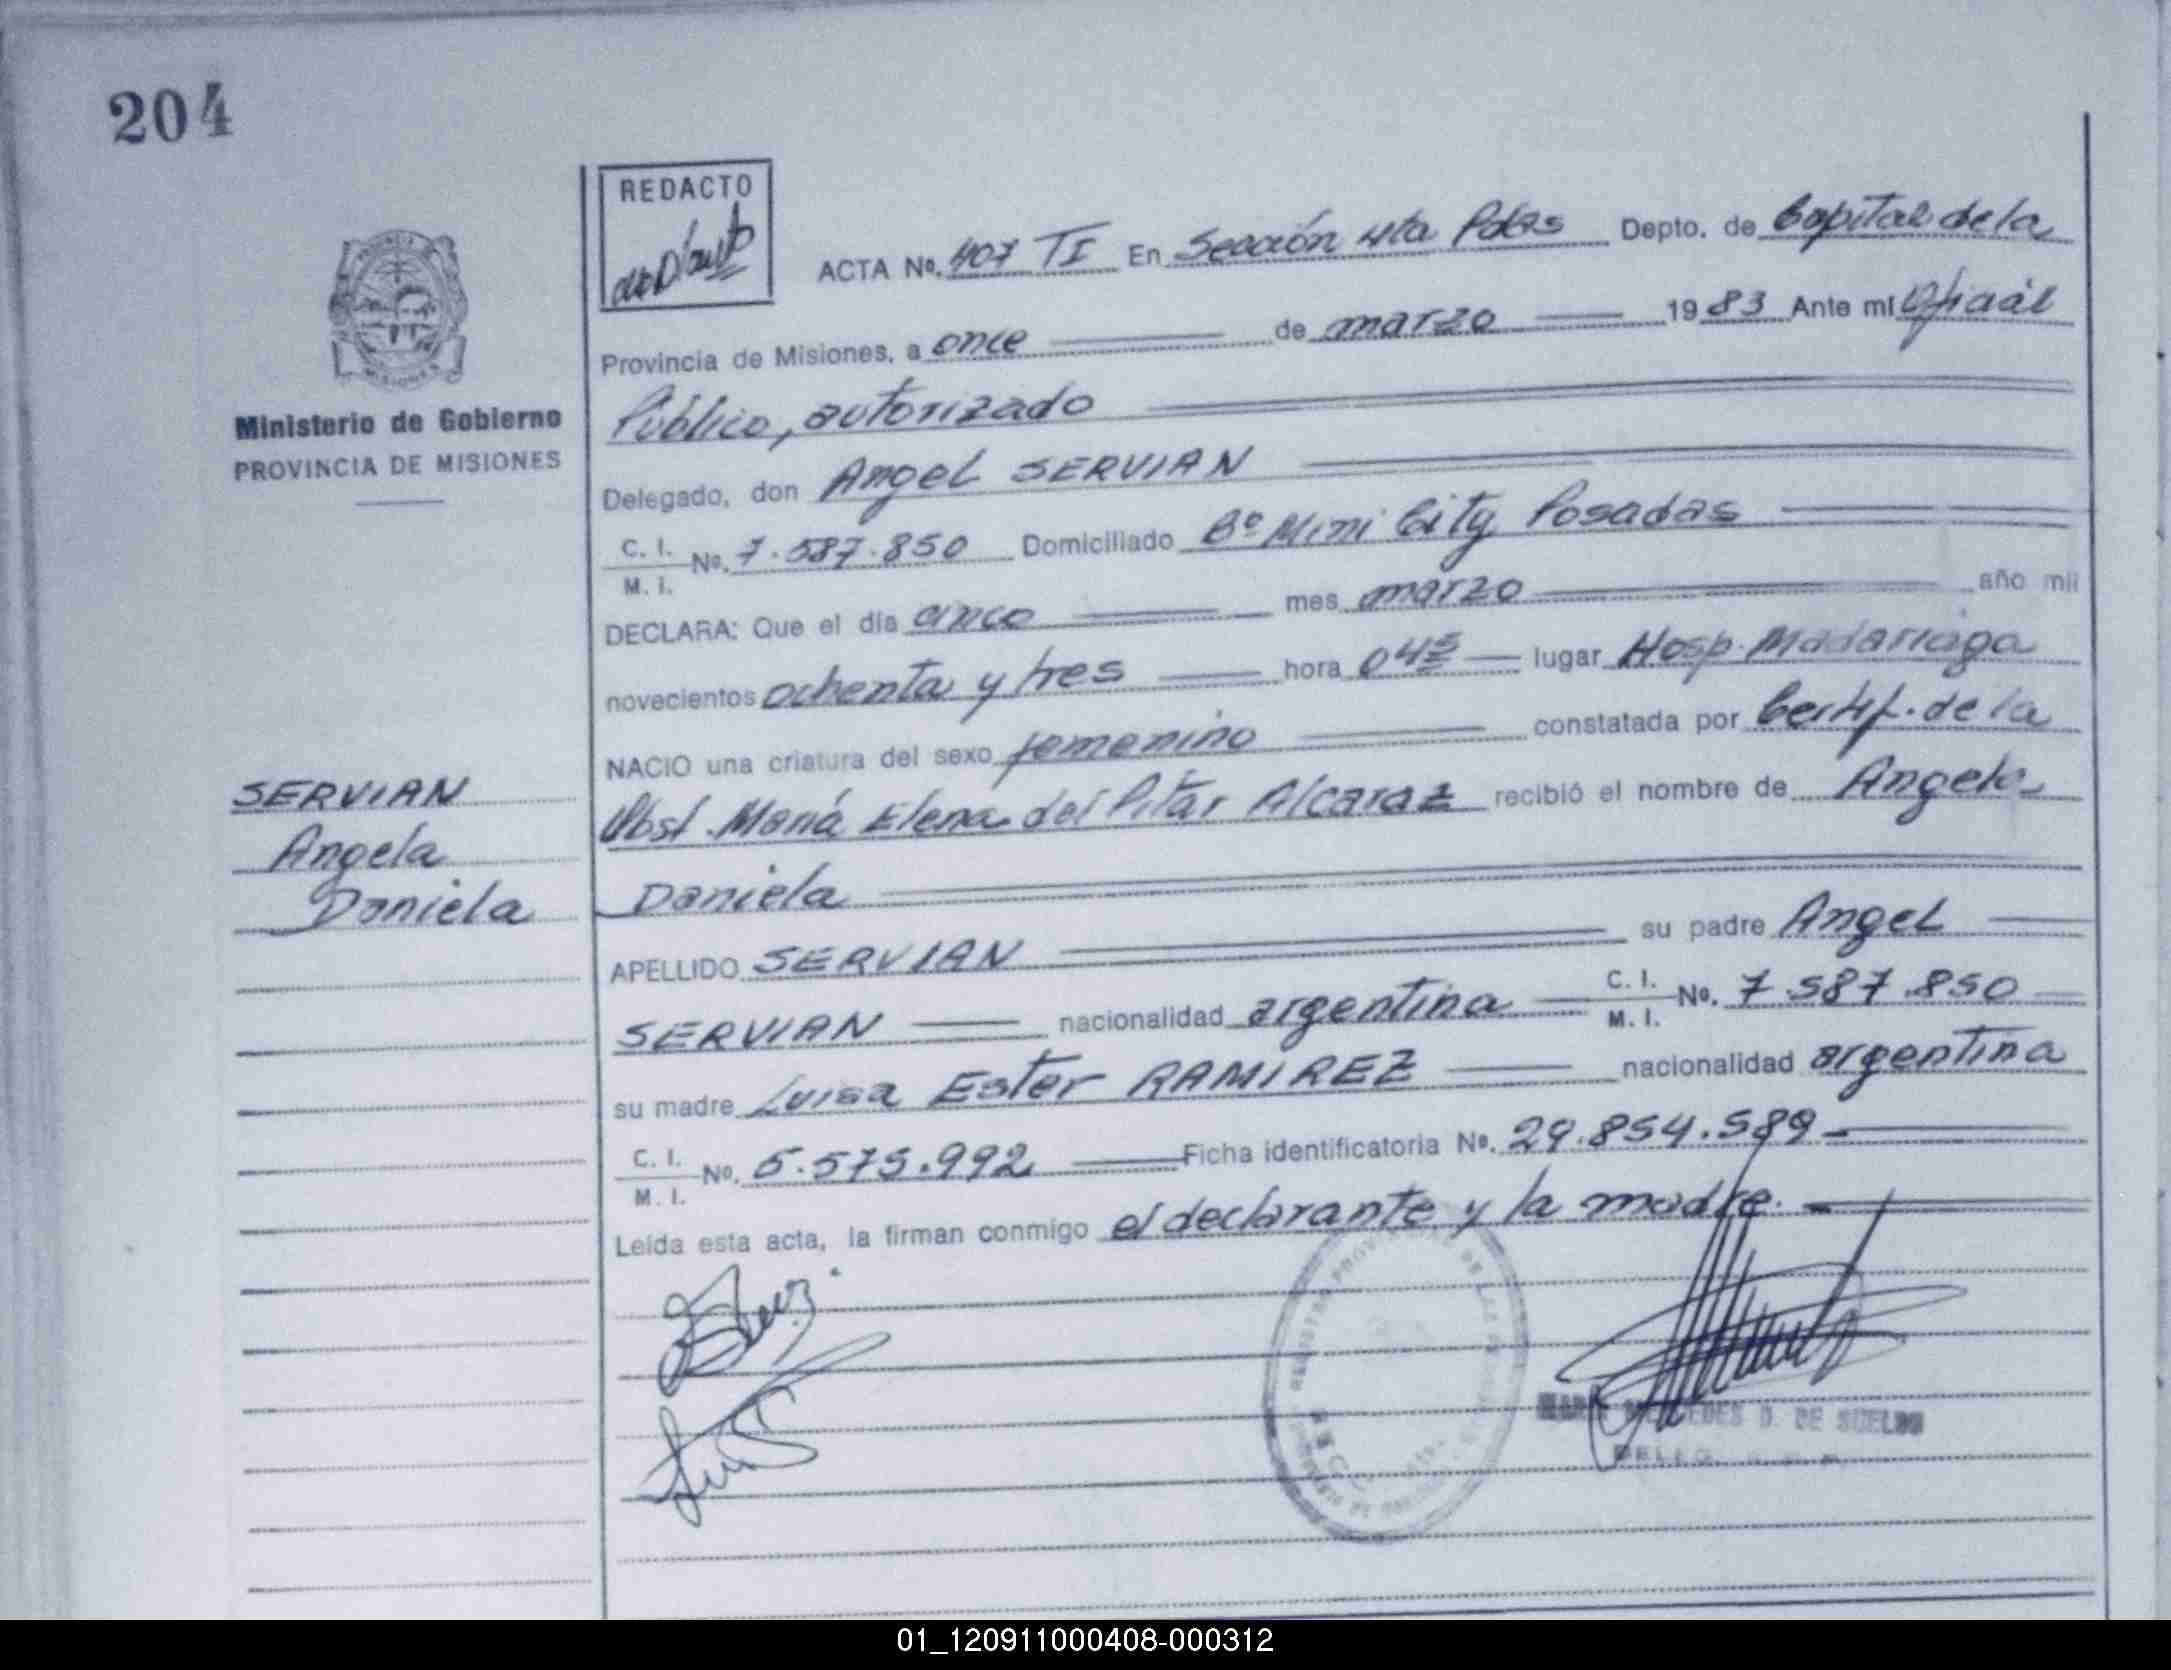 204
REDACTO
ACTA Nº. 407 TI En Sección 4ta Pdas Depto. de Capital de la
Provincia de Misiones, a once de marzo 1983 Ante mí Oficial
Público, autorizado
Delegado, don Angel SERVIAN
C. I. / M. I. Nº. 7.587.850 Domiciliado Bº Mini City Posadas
DECLARA: Que el día cinco mes marzo año mil
novecientos ochenta y tres hora 04 lugar Hosp. Madariaga
NACIO una criatura del sexo femenino constatada por Certif. de la
Obst. María Elena del Pilar Alcaraz recibió el nombre de Angela
Daniela
APELLIDO SERVIAN su padre Angel
SERVIAN nacionalidad argentina C. I. / M. I. Nº. 7.587.850
su madre Luisa Ester RAMIREZ nacionalidad argentina
C. I. / M. I. Nº. 5.575.992 Ficha identificatoria Nº. 29.854.589
Leída esta acta, la firman conmigo el declarante y la madre.
MISIONES
Ministerio de Gobierno
PROVINCIA DE MISIONES
SERVIAN
Angela
Daniela
DE SUELDO
01_120911000408-000312